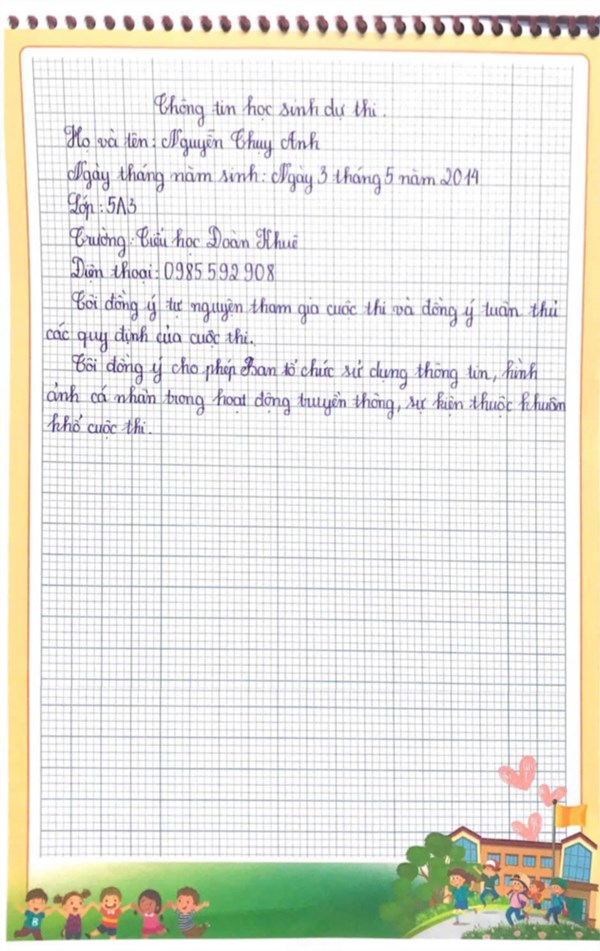 Thông tin học sinh dự thi.
Họ và tên: Nguyễn Thuy Anh
Ngày tháng năm sinh: Ngày 3 tháng 5 năm 2014
Lớp: 5A3
Trường: Tiểu học Doàn Khuê
Diện thoại: 0985 592 908
Tôi đồng ý tự nguyện tham gia cuộc thi và đồng ý tuân thủ
các quy định của cuộc thi.
Tôi đồng ý cho phép Ban tổ chức sử dụng thông tin, hình
ảnh cá nhân trong hoạt động truyền thông, sự kiện thuộc khuôn
khổ cuộc thi.
8